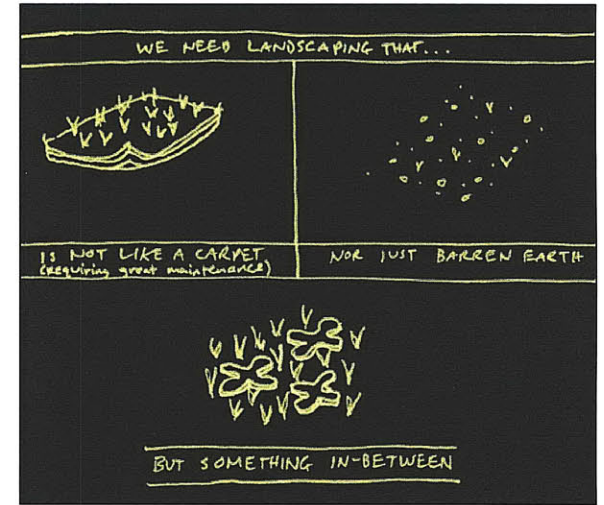 WE NEED LANDSCAPING THAT...
IS NOT LIKE A CARPET
(requiring great maintenance)
NOR JUST BARREN EARTH
BUT SOMETHING IN-BETWEEN